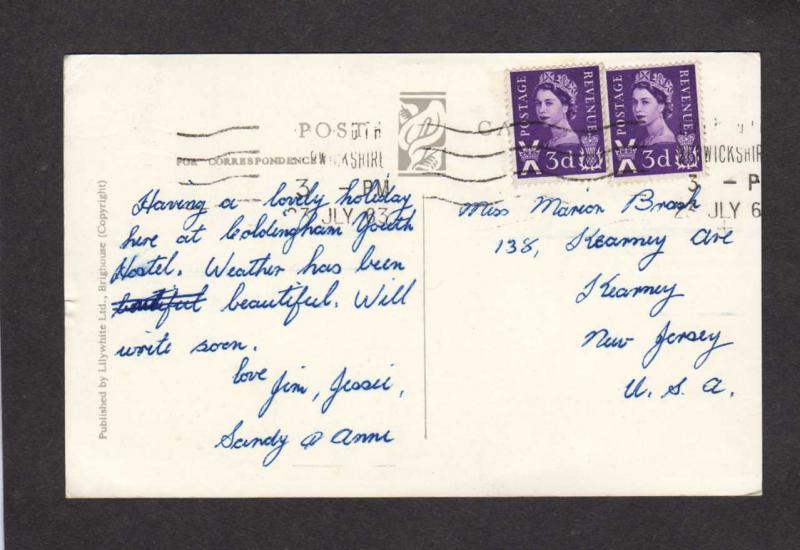 POST CA
FOR CORRESPONDENCE
RWICKSHIRE
3 - PM
27 JLY 63
POSTAGE REVENUE 3d
POSTAGE REVENUE 3d
WICKSHIR
3 - P
JLY 6
Having a lovely holiday
here at Coldingham Youth
Hostel. Weather has been
beautiful. Will
write soon.
love
Jim, Jessie,
Sandy & Anne
Miss Marion Brash
138, Kearney Ave
Kearney
New Jersey
U. S. A.
Published by Lilywhite Ltd., Brighouse (Copyright)